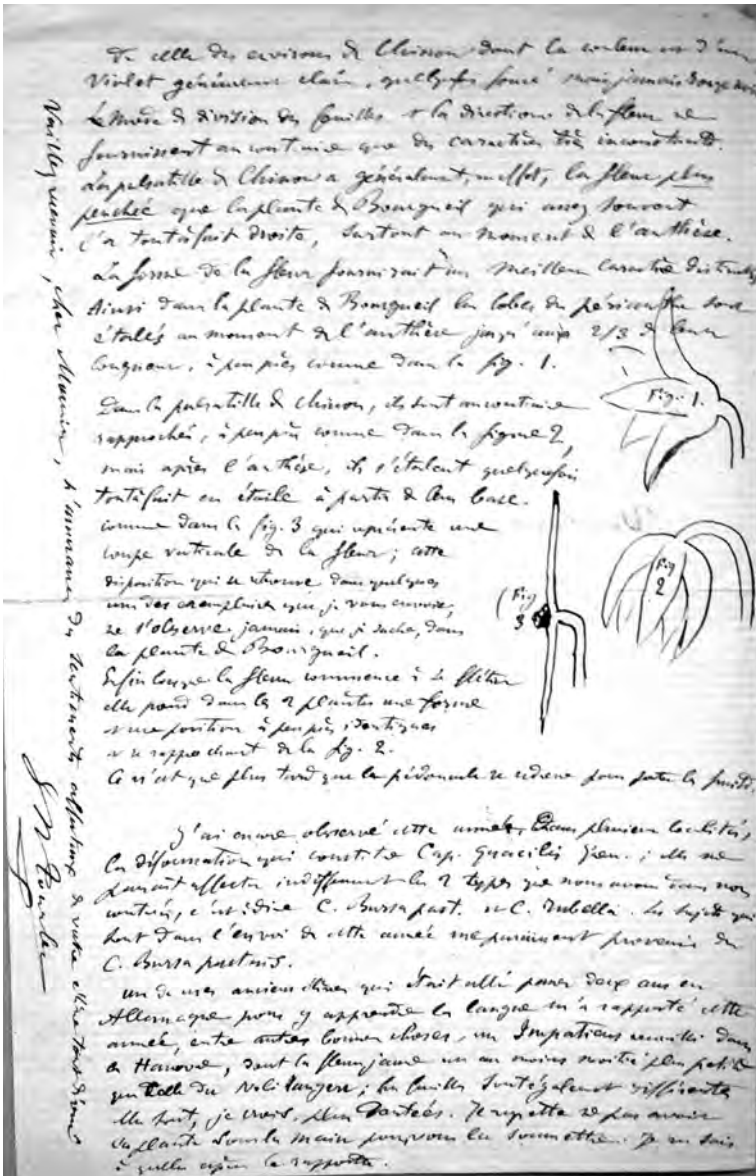 de celle des environs de Chinon dont la couleur est d'un
Violet généralement clair, quelquefois foncé mais jamais rouge
Le mode de division des feuilles & la direction de la fleur ne
fournissent au contraire que des caractères très inconstants.
La pulsatille de Chinon a généralement, en effet, la fleur plus
penchée que la plante de Bourgueil qui assez souvent
l'a tout à fait droite, surtout au moment de l'anthèse.
La forme de la fleur fournirait un meilleur caractère
Ainsi dans la plante de Bourgueil les lobes du périanthe sont
étalés au moment de l'anthèse jusqu'aux 2/3 de leur
longueur, à peu près comme dans la fig. 1.
Dans la pulsatille de Chinon, ils sont au contraire
rapprochés, à peu près comme dans la figure 2,
mais après l'anthèse, ils s'étalent quelquefois
tout à fait en étoile à partir de leur base.
comme dans la fig. 3 qui représente une
coupe verticale de la fleur; cette
disposition qui se retrouve dans quelques
uns des exemplaires que je vous envoie,
ne s'observe jamais, que je sache, dans
la plante de Bourgueil.
Enfin lorsque la fleur commence à se flétrir
elle prend dans les 2 plantes une forme
& une position à peu près identiques
& se rapprochant de la fig. 2.
Ce n'est que plus tard que le pédoncule se redresse pour porter les fruits.
Fig. 1.
Fig 2
Fig 3
J'ai encore observé cette année, dans plusieurs localités,
la déformation qui constitue Cap. gracilis Gren.; elle me
paraît affecter indifféremment les 2 types que nous avons dans nos
contrées, c'est à dire C. Bursa past. & C. rubella. Les sujets qui
sont dans l'envoi de cette année me paraissent provenir du
C. Bursa pastoris.
un de mes anciens élèves qui était allé passer deux ans en
Allemagne pour y apprendre la langue m'a rapporté cette
année, entre autres bonnes choses, un Impatiens recueilli dans
le Hanovre, dont la fleur jaune est au moins moitié plus petite
que celle du Noli tangere; les feuilles sont également différentes
elles sont, je crois, plus dentées. Je regrette ne pas avoir
la plante sous la main pour vous la soumettre. Je ne sais
à quelle espèce la rapporter.
Veuillez recevoir, cher Monsieur, l'assurance des sentiments affectueux de votre tout dévoué
Tourlet